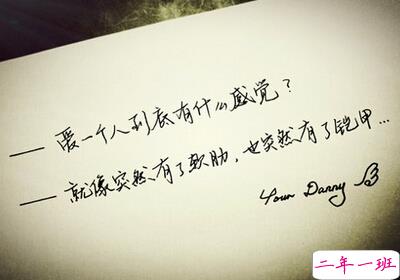 —— 爱一个人到底有什么感觉?
—— 就像突然有了软肋,也突然有了铠甲...
Your Danny
二年一班